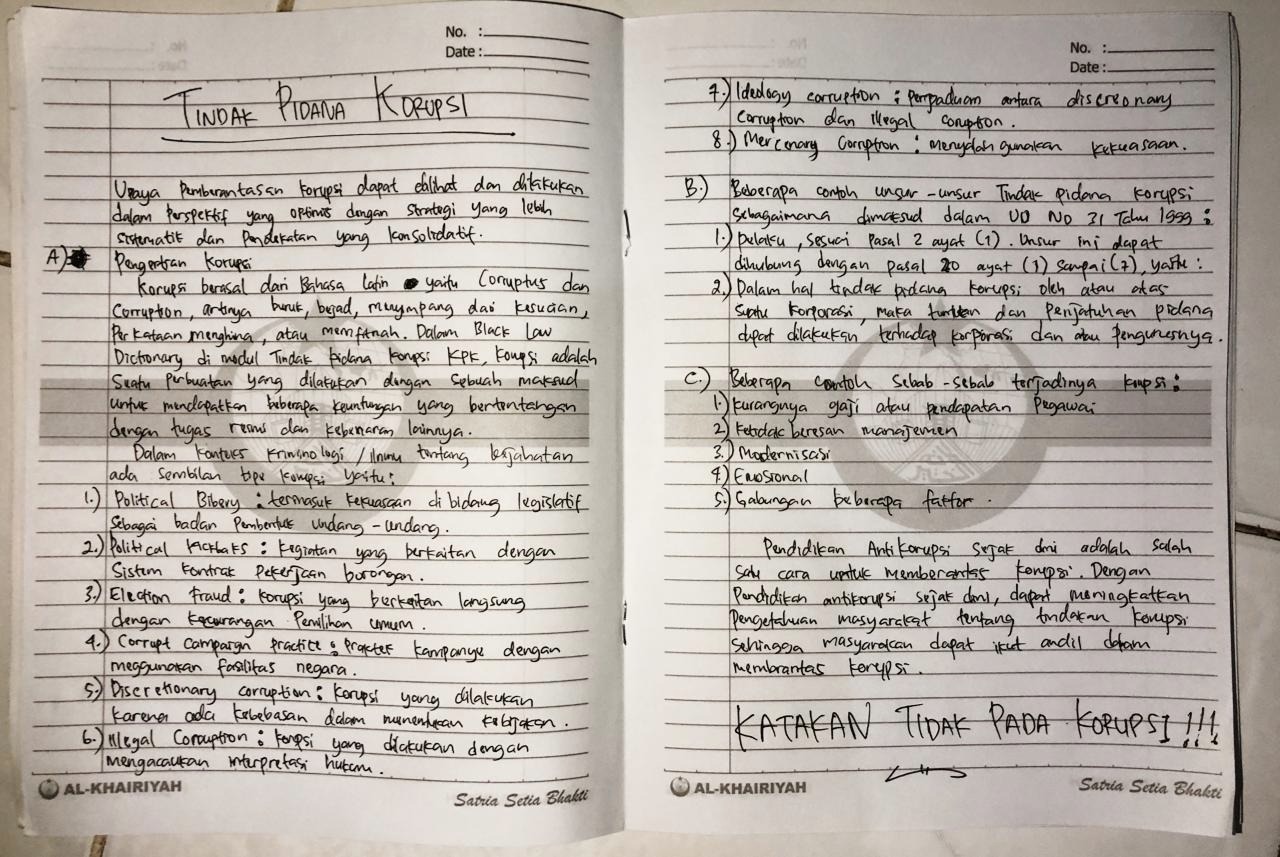 No. :
Date :
TINDAK PIDANA KORUPSI
Upaya Pemberantasan korupsi dapat dilihat dan dilakukan
dalam perspektif yang optimis dengan strategi yang lebih
sistematik dan Pendekatan yang konsolidatif.
A) Pengertian Korupsi
Korupsi berasal dari Bahasa latin yaitu Corruptus dan
Corruption, artinya buruk, bejad, menyimpang dari kesucian,
Perkataan menghina, atau memfitnah. Dalam Black Law
Dictionary di modul Tindak Pidana Korupsi KPK, Korupsi adalah
Suatu perbuatan yang dilakukan dengan sebuah maksud
untuk mendapatkan beberapa keuntungan yang bertentangan
dengan tugas resmi dan kebenaran lainnya.
Dalam konteks kriminologi / ilmu tentang kejahatan
ada sembilan tipe korupsi yaitu :
1.) Political Bibery : termasuk kekuasaan di bidang legislatif
Sebagai badan Pembentuk undang-undang.
2.) Political kickbaks : kegiatan yang berkaitan dengan
Sistem kontrak pekerjaan borongan.
3.) Election Fraud : korupsi yang berkaitan langsung
dengan kecurangan Pemilihan umum.
4.) Corrupt Campaign Practice : Praktek kampanye dengan
meggunakan fasilitas negara.
5.) Discretionary corruption : korupsi yang dilakukan
karena ada kebebasan dalam menentukan kebijakan.
6.) Illegal Corruption : korupsi yang dilakukan dengan
mengacaukan interpretasi hukum.
AL-KHAIRIYAH
Satria Setia Bhakti
No. :
Date :
7.) Ideology corruption : perpaduan antara discreonary
corruption dan illegal coruption.
8.) Mercenary Corruption : menyalah gunakan kekuasaan.
B.) Beberapa contoh unsur-unsur Tindak pidana korupsi
sebagaimana dimaksud dalam UU No 31 Tahu 1999 :
1.) pelaku, sesuai pasal 2 ayat (1). Unsur ini dapat
dihubung dengan pasal 20 ayat (1) sampai (7), yaitu :
2.) Dalam hal tindak pidana korupsi oleh atau atas
suatu korporasi, maka tuntutan dan penjatuhan pidana
dapat dilakukan terhadap korporasi dan atau pengurusnya.
C.) Beberapa contoh Sebab-sebab terjadinya korupsi :
1.) kurangnya gaji atau pendapatan Pegawai
2) ketidak beresan manajemen
3.) Modernisasi
4) Emosional
5.) Gabungan beberapa faktor.
Pendidikan Antikorupsi sejak dini adalah salah
satu cara untuk memberantas korupsi. Dengan
Pendidikan antikorupsi sejak dini, dapat meningkatkan
Pengetahuan masyarakat tentang tindakan korupsi
sehingga masyarakat dapat ikut andil dalam
membrantas korupsi.
KATAKAN TIDAK PADA KORUPSI !!!
AL-KHAIRIYAH
Satria Setia Bhakti